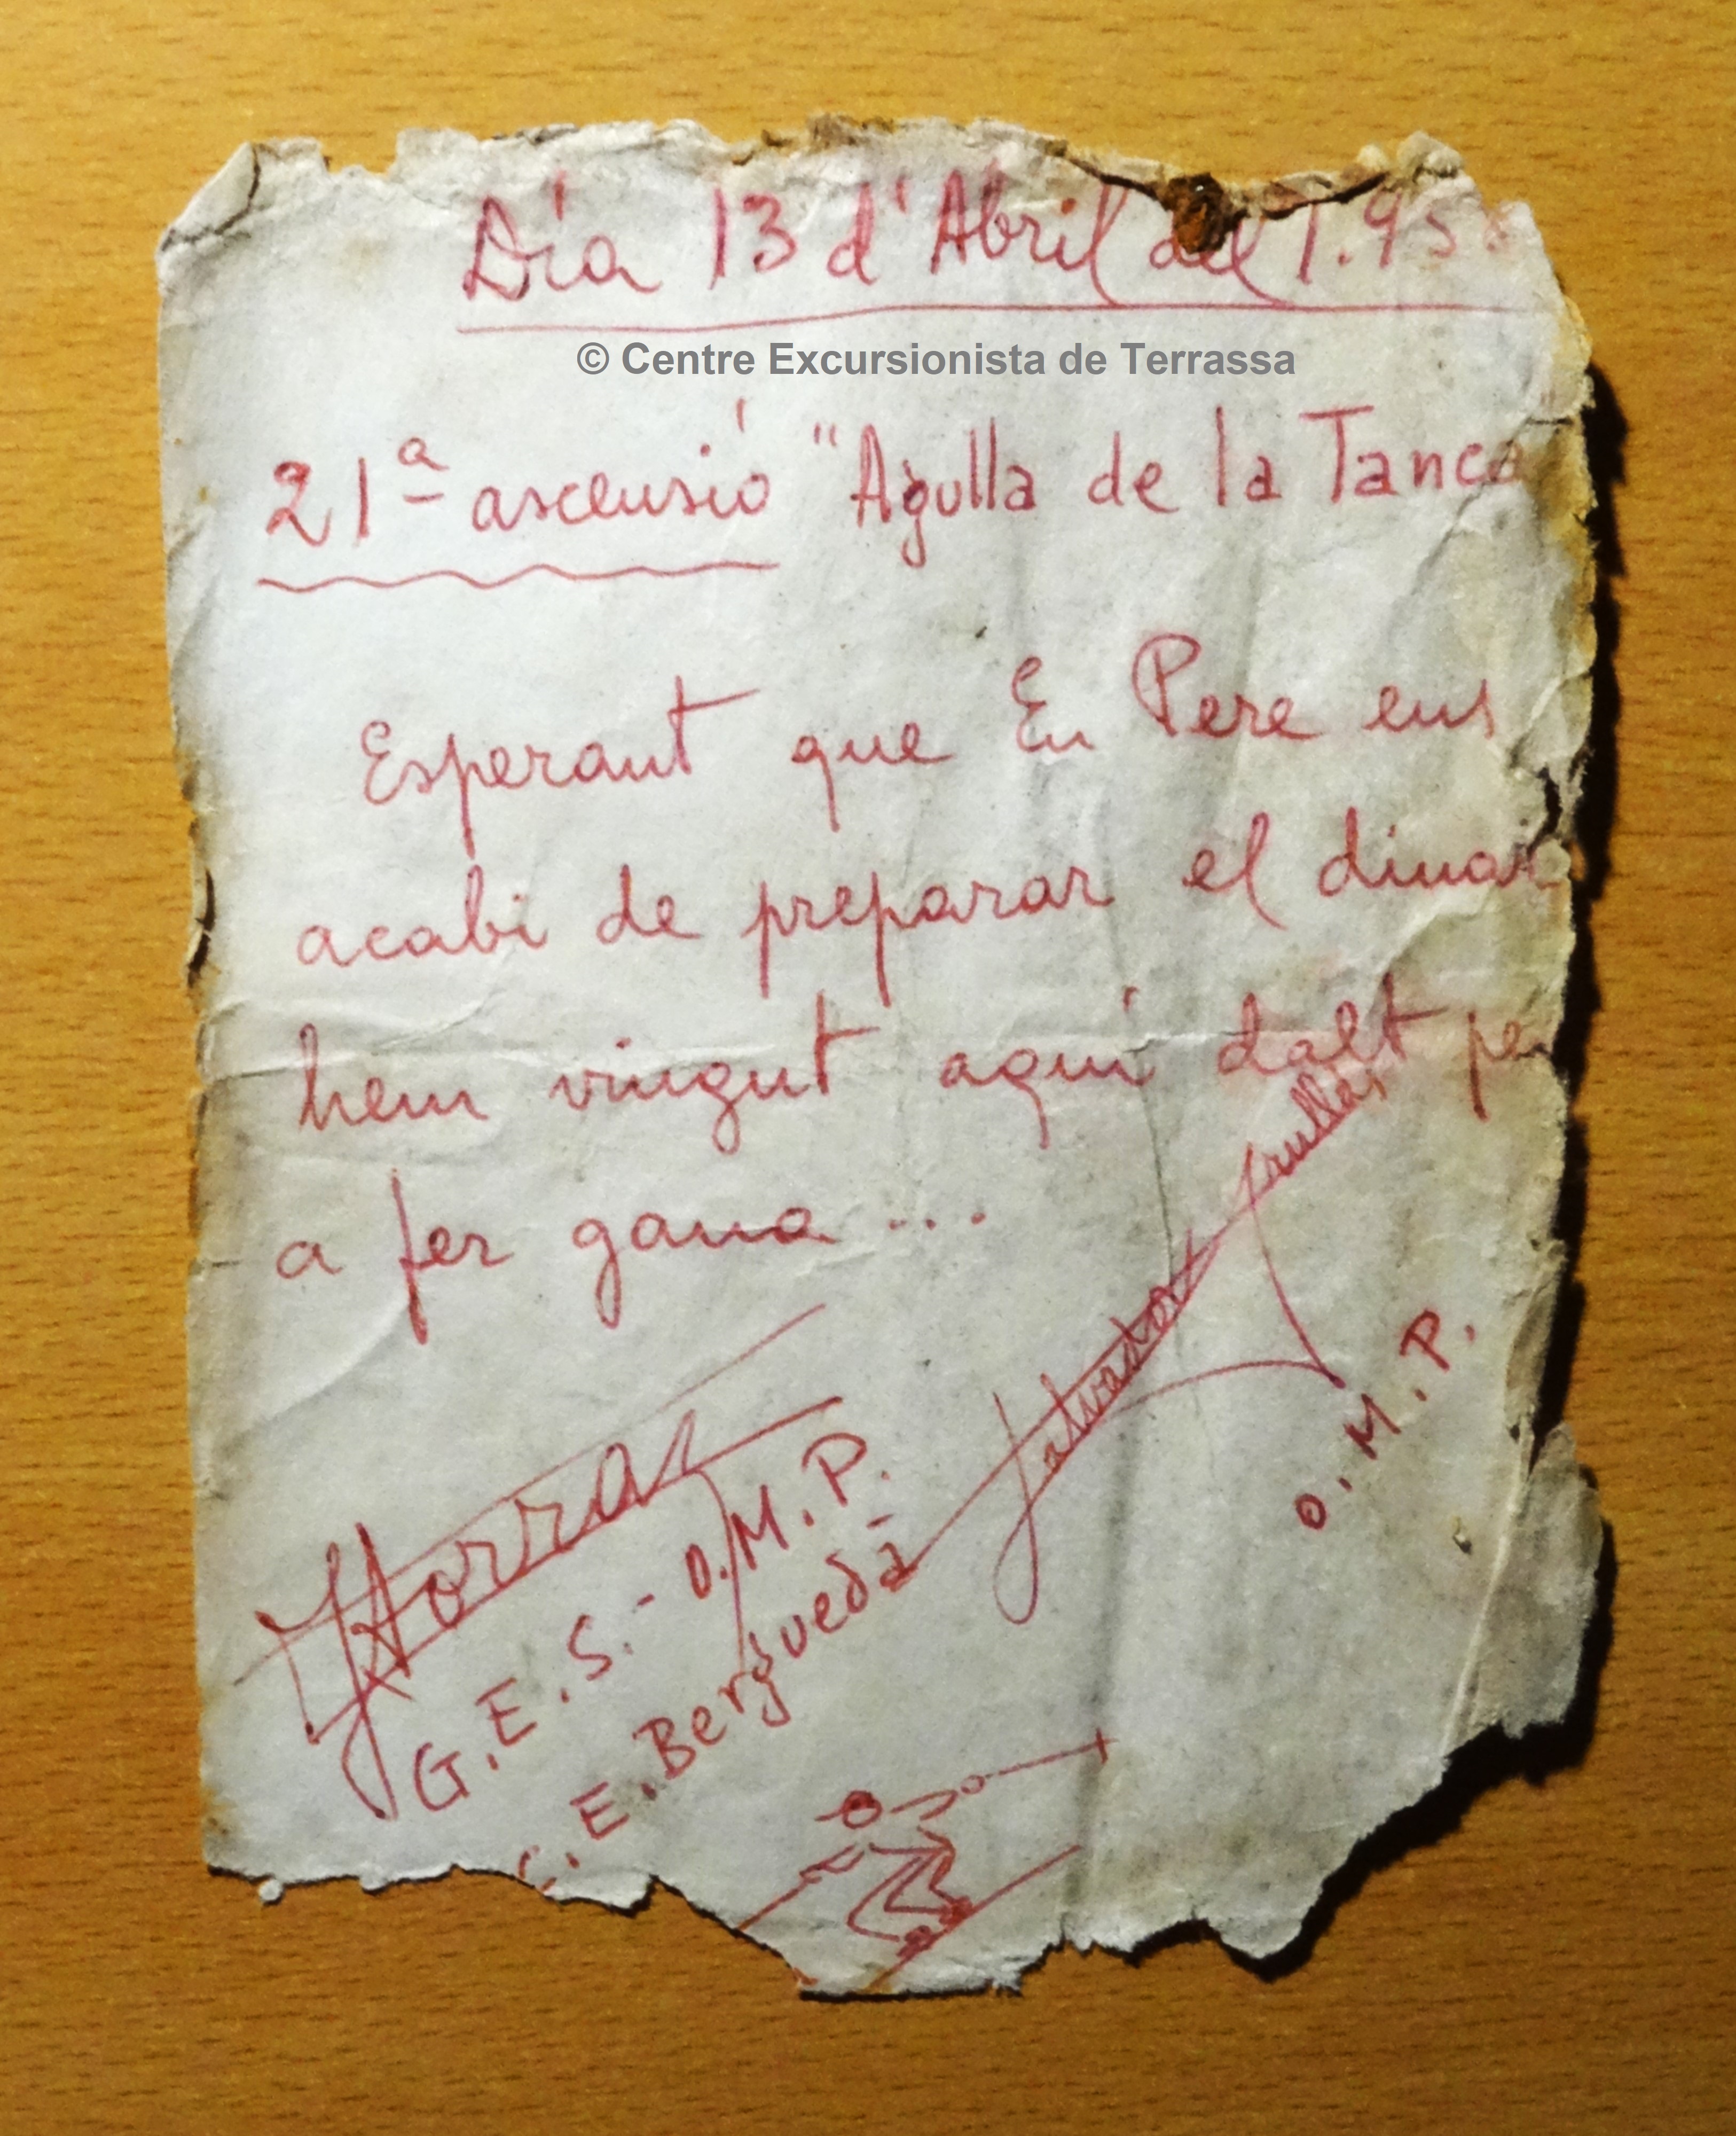 Día 13 d'Abril del 1.958
© Centre Excursionista de Terrassa
21ª ascensió "Agulla de la Tanca
Esperant que En Pere ens
acabi de preparar el dinar
hem vingut aquí dalt per
a fer gana ...
Salvador
O.M.P.
G.E.S.-O.M.P.
C.E.Berguedà